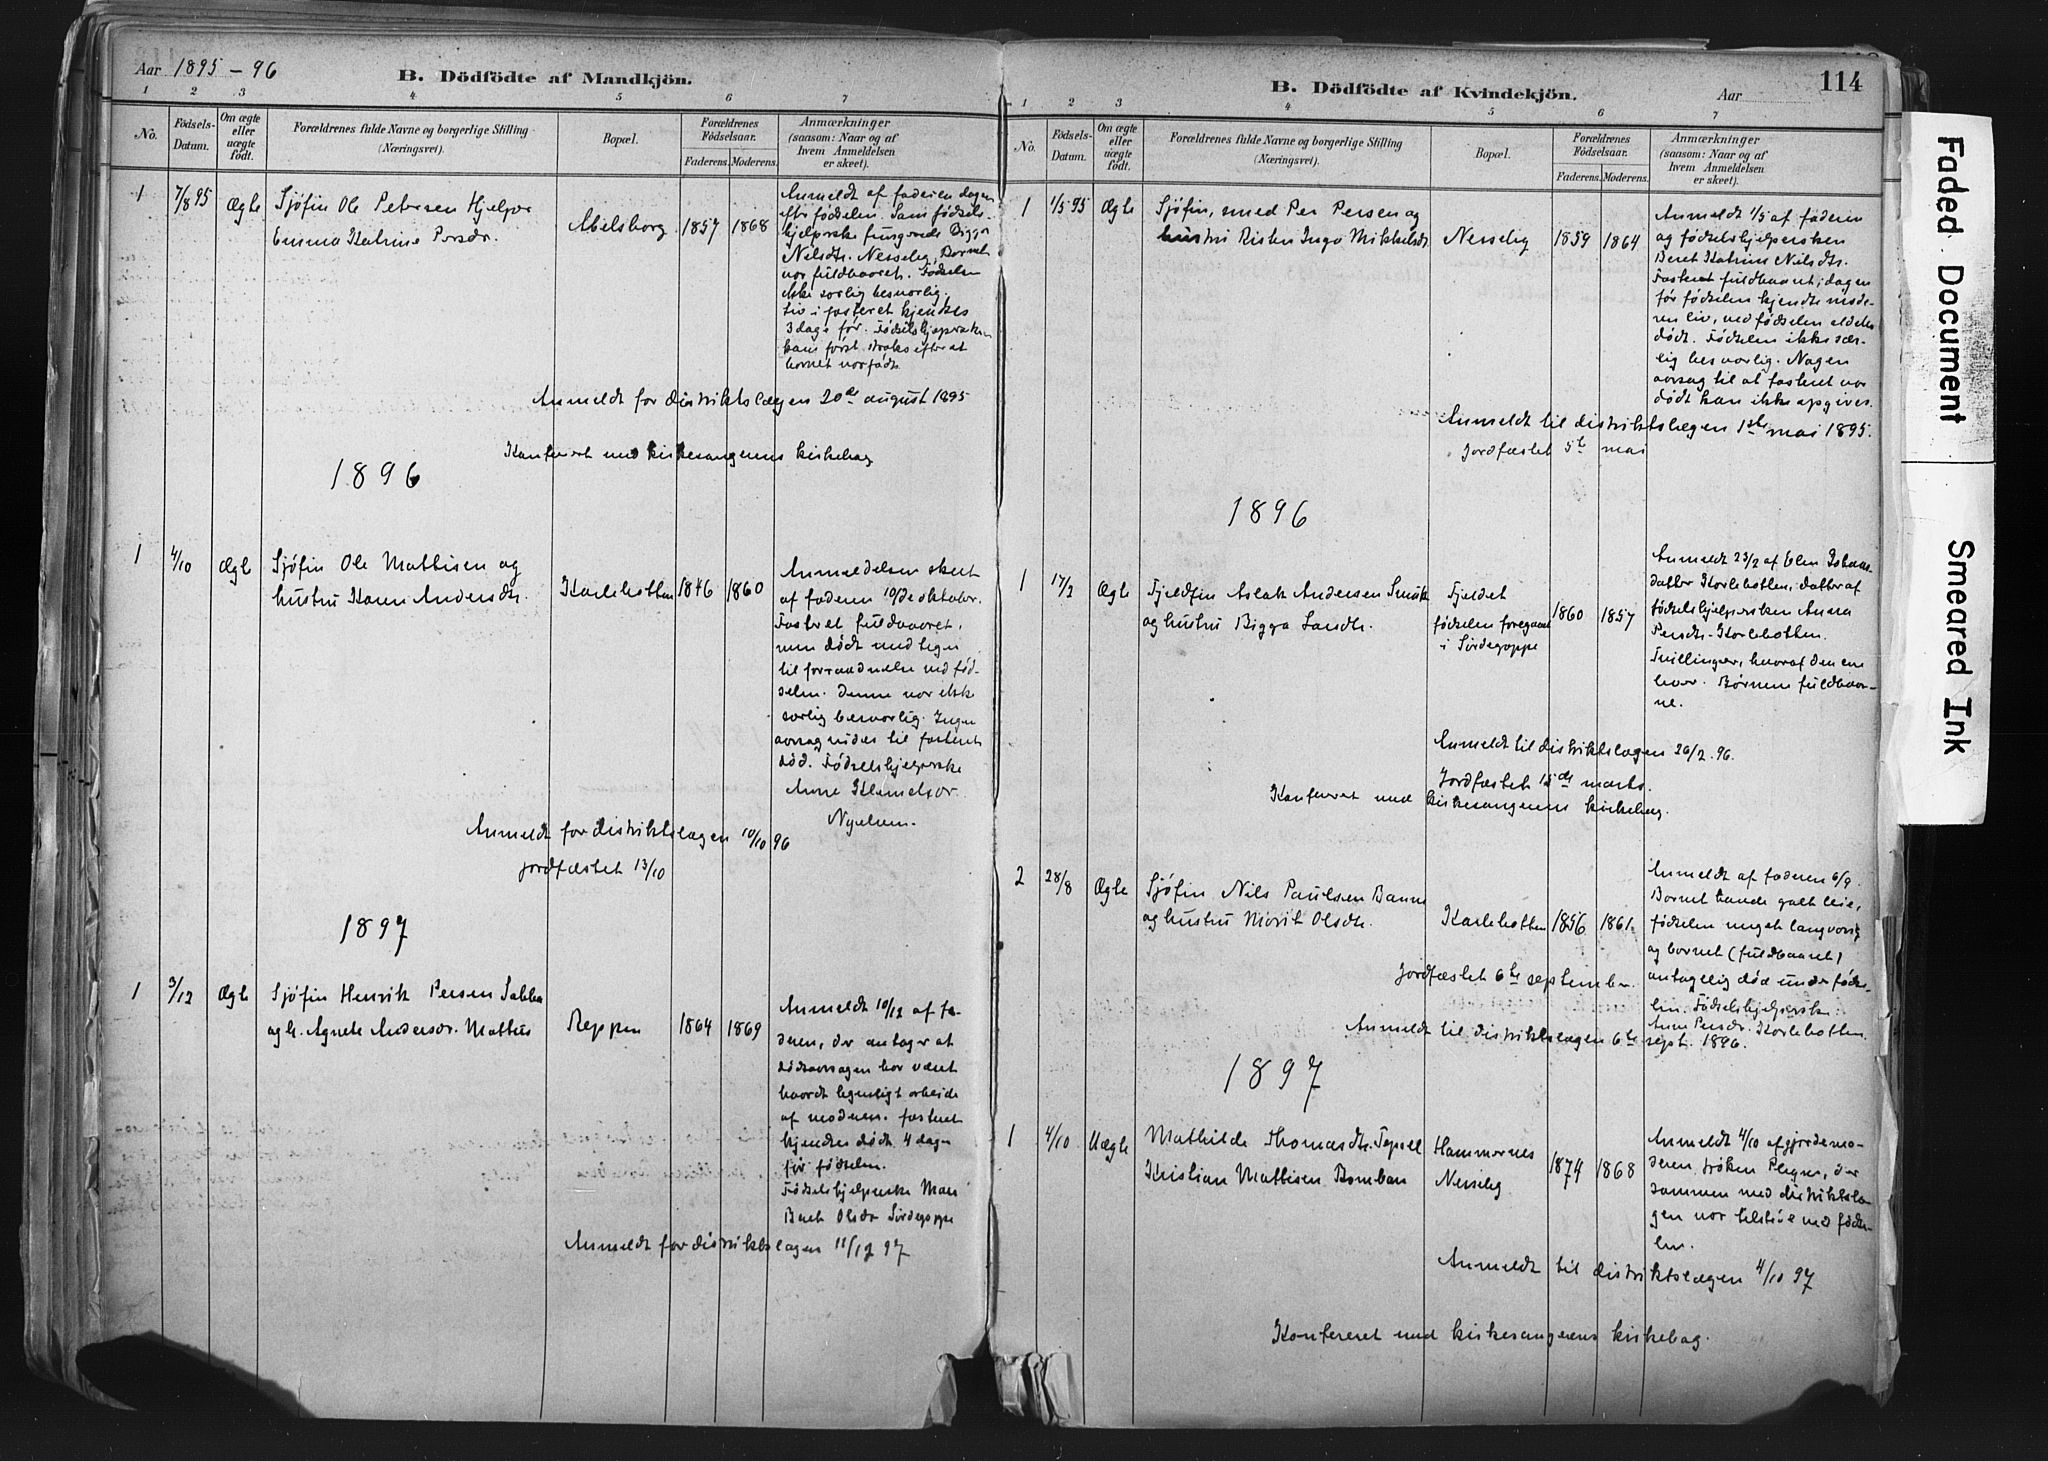 Aar 1895 - 96
B. Dödfödte af Mandkjön.
1 2 3 4 5 6 7
No.
Födsels-
Datum.
Om ægte
eller
uægte
födt.
Forældrenes fulde Navne og borgerlige Stilling
(Næringsvei).
Bopæl.
Forældrenes
Födselsaar.
Faderens. Moderens.
Anmærkninger
(saasom: Naar og af
hvem Anmeldelsen
er skeet).
1 7/8 95 Ægte Sjöfin Ole Petersen Hjelper Abelsborg 1857 1868
Emma Katrine Persdr.
Anmeldt af faderen dagen
efter födselen. Som födsels-
hjelperske fungerede Bigga
Nilsdtr. Nesseby, Barnet
var fuldbaaret. Födselen
ikke særlig besværlig.
Liv i fosteret kjendtes
3 dage för. Födselshjelpersken
kom först straks efter at
barnet var född
Anmeldt for distriktslægen 20de august 1895
Konfereret med kirkesangerens kirkebog
1896
1 4/10 Ægte Sjöfin Ole Mathisen og Karlebotten 1846 1860
hustru Karen Andersdtr.
Anmeldelsen skeet
af faderen 10/de oktober.
Fostret fuldbaaret,
men dödt med tegn
til forraadnelse ved föd-
selen. Denne var ikke
særlig besværlig. Ingen
aarsag vides til fosterets
död. Födselshjelperske
Anne Klemetsdr
Nyelven.
Anmeldt for distriktslægen 10/10 96
jordfæstet 13/10
1897
1 3/12 Ægte Sjöfin Henrik Persen Sabba Reppen 1864 1869
og h. Agnete Andersdr. Mathus
Anmeldt 10/12 af fa-
deren, der antager at
dödsaarsagen har været
haardt legemligt arbeide
af moderen. fosteret
kjendtes dödt 4 dage
för födselen.
Födselshjelperske Mari
Berit Olsdr Sirdegoppe
Anmeldt for distriktslægen 11/12 97
114
B. Dödfödte af Kvindekjön.
Aar
1 2 3 4 5 6 7
No.
Födsels-
Datum.
Om ægte
eller
uægte
födt.
Forældrenes fulde Navne og borgerlige Stilling
(Næringsvei).
Bopæl.
Forældrenes
Födselsaar.
Faderens. Moderens.
Anmærkninger
(saasom: Naar og af
hvem Anmeldelsen
er skeet).
1 1/5 95 Ægte Sjöfin, smed Per Persen og
hustru Risten Inga Mikkelsdtr Nesseby 1859 1864
Anmeldt 1/5 af faderen
og födselshjelpersken
Beret Katrine Nilsdtr.
Fosteret fuldbaaret; dagen
för födselen kjendte mode-
ren liv, ved födselen aldeles
dödt. Födselen ikke sær-
lig besværlig. Nogen
aarsag til at fosteret var
dödt kan ikke opgives.
Anmeldt til distriktslægen 1ste mai 1895.
Jordfæstet 5te mai
1896
1 17/2 Ægte Fjeldfin Aslak Andersen Smuk Fjeldet 1860 1857
og hustru Bigga Larsdtr. födselen foregaaet
i Sirdegoppe
Anmeldt 23/2 af Elen Johans-
datter Karlebotten, datter af
födselshjelpersken Anna
Persdtr. Karlebotten.
Tvillinger, hvoraf den ene
lever. Börnene fuldbaar-
ne.
Anmeldt til distriktslægen 26/2 96.
Jordfæstet 15de marts.
Konfereret med kirkesangerens kirkebog.
2 28/8 Ægte Sjöfin Nils Paulsen Banne
og hustru Marit Olsdtr. Karlebotten 1856 1861.
Anmeldt af faderen 6/9.
Barnet havde galt leie,
födselen meget langvarig
og barnet (fuldbaaret)
antagelig död under födse-
len. Födselshjelperske
Anne Persdr. Karlebotten.
Jordfæstet 6te september.
Anmeldt til distriktslægen 6te sept. 1896.
1897
1 4/10 Uægte Mathilde Thomasdtr. Hammernes 1874 1868
Kristian Mathisen Bomban Nesseby
Anmeldt 4/10 af gjordemo-
deren, fröken, der
sammen med distriktslæ-
gen var tilstede ved födse-
len.
Anmeldt til distriktslægen 4/10 97
Konfereret med kirkesangerens kirkebog.
Faded Document
Smeared Ink